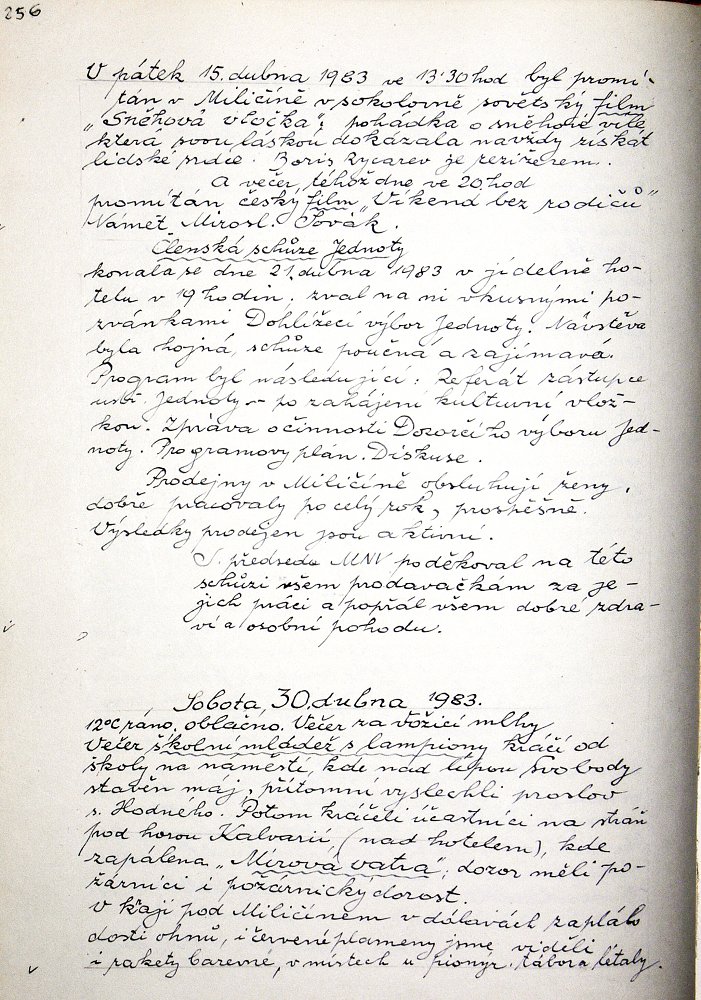 256
V pátek 15. dubna 1983 ve 13'30 hod byl promí-
tán v Miličíně v sokolovně sovětský film
„Sněhová vločka", pohádka o sněhové víle,
která svou láskou dokázala navždy získat
lidské srdce. Boris Rycarev je režizérem.
A večer, téhož dne ve 20 hod
promítán český film „Víkend bez rodičů"
Námět Mirosl. Sovák.
Členská schůze Jednoty
konala se dne 21. dubna 1983 v jídelně ho-
telu v 19 hodin, zval na ni vkusnými po-
zvánkami Dohlížecí výbor Jednoty. Návštěva
byla hojná, schůze poučná a zajímavá.
Program byl následující: Referát zástupce
Jednoty – po zahájení kulturní vlož-
kou. Zpráva o činnosti Dozorčího výboru Jed-
noty. Programový plán. Diskuse.
Prodejny v Miličíně obsluhují ženy,
dobře pracovaly po celý rok, prospěšně.
Výsledky prodejen jsou aktivní.
S. předseda MNV poděkoval na této
schůzi všem prodavačkám za je-
jich práci a popřál všem dobré zdra-
ví a osobní pohodu.
Sobota, 30. dubna 1983.
12°C ráno, oblačno. Večer za vožicí mlhy
Večer školní mládež s lampiony kráčí od
školy na náměstí, kde nad lípou Svobody
stavěn máj, přítomní vyslechli proslov
s. Hodného. Potom kráčeli účastníci na stráň
pod horou Kalvarií, (nad hotelem), kde
zapálena „Mírová vatra", dozor měli po-
žárníci i požárnický dorost.
V kraji pod Miličínem v dálavách zaplálo
dosti ohňů, i červené plameny jsme viděli
i rakety barevné, v místech u pionýr. tábora létaly.